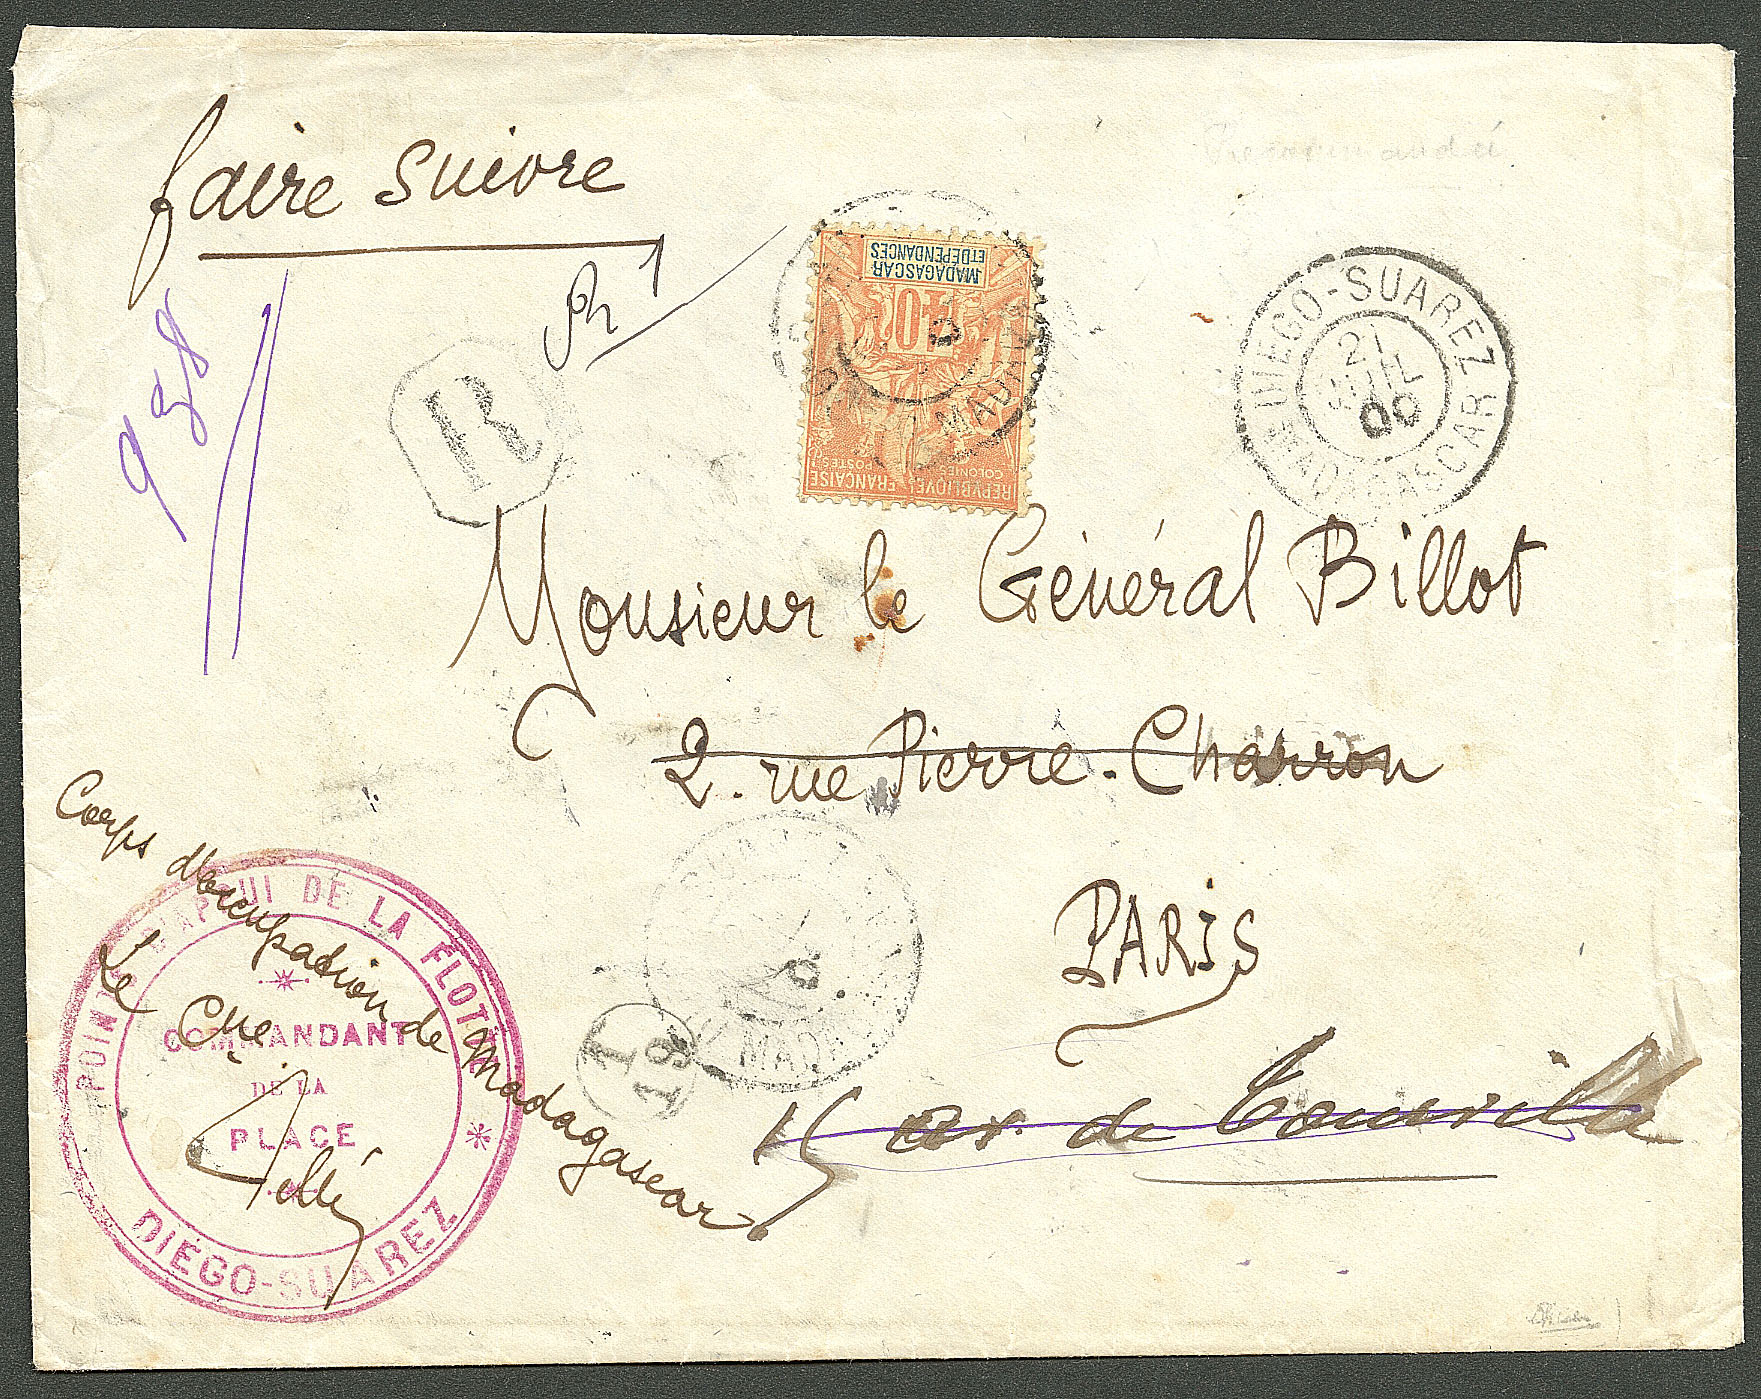 faire suivre
Recommandé
R
958
MADAGASCAR
ET DÉPENDANCES
40
COLONIES POSTES
REPUBLIQUE FRANCAISE
DIEGO-SUAREZ
21
JUIL
00
MADAGASCAR
Monsieur le Général Billot
2. rue Pierre-Charron
PARIS
15 av. de Tourville
MADA
Corps d'occupation de Madagascar
Le Cne
POINT D'APPUI DE LA FLOTTE
COMMANDANT
DE LA
PLACE
DIEGO-SUAREZ